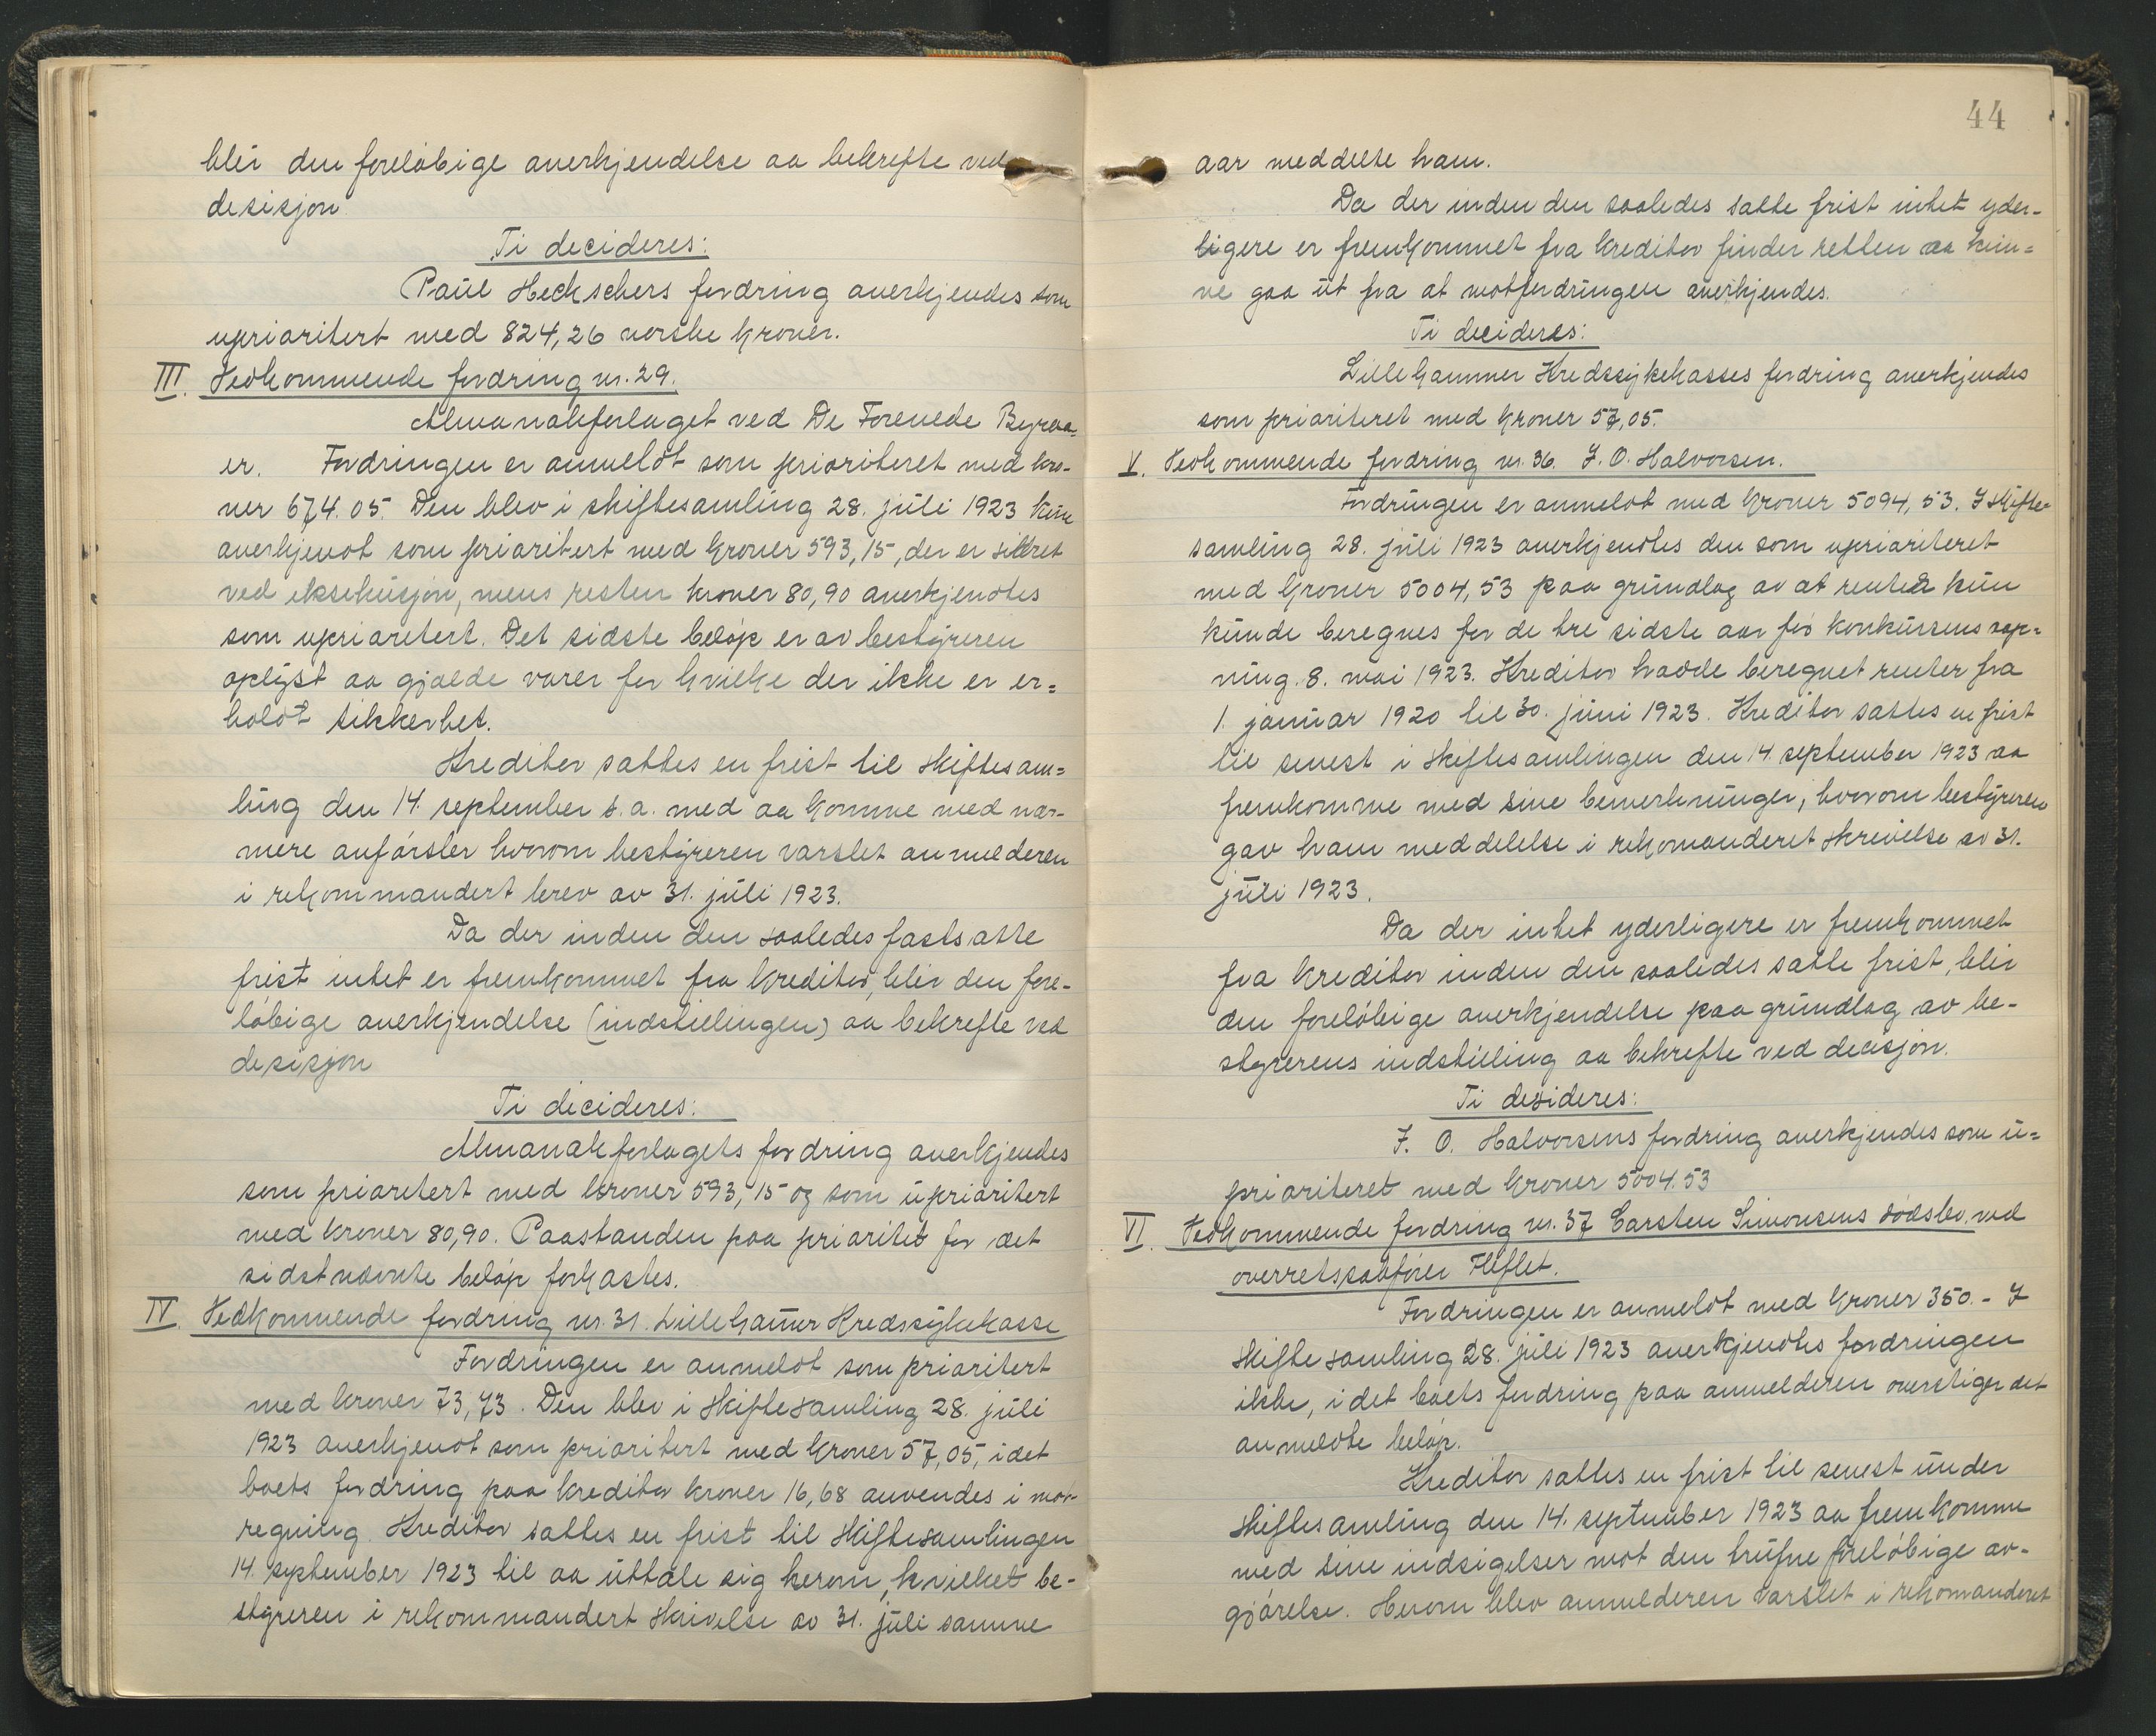 blir den foreløbige anerkjendelse aa bekrefte ved
desisjon
Ti decideres:
Paul Heckschers fordring anerkjendes som
uprioritert med 824,26 norske kroner.
III. Vedkommende fordring nr. 29.
Almanakforlaget ved De Forenede Byraa-
er. Fordringen er anmeldt som prioriteret med kro-
ner 674.05. Den blev i skiftesamling 28. juli 1923 kun
anerkjendt som prioritert med kroner 593,15, der er sikret
ved eksekusjon, mens resten kroner 80,90 anerkjendtes
som uprioritert. Det sidste beløp er av bestyreren
oplyst aa gjælde varer for hvilke der ikke er er=
holdt sikkerhet.
Kreditor sattes en frist til skiftesam=
ling den 14. september s.a. med aa komme med nær-
mere anførsler hvorom bestyreren varslet anmelderen
i rekommandert brev av 31. juli 1923.
Da der inden den saaledes fastsatte
frist intet er fremkommet fra kreditor, blir den fore-
løbige anerkjendelse (indstillingen) aa bekrefte ved
desisjon
Ti decideres:
Almanakforlagets fordring anerkjendes
som prioritert med kroner 593,15 og som uprioritert
med kroner 80,90. Paastanden paa prioritet for det
sidstnævnte beløp forkastes.
IV. Vedkommende fordring nr. 31. Lillehamer Kredssykekasse
Fordringen er anmeldt som prioritert
med kroner 73,73. Den blev i skiftesamling 28. juli
1923 anerkjendt som prioritert med kroner 57,05, idet
boets fordring paa kreditor kroner 16,68 anvendes i mot-
regning. Kreditor sattes en frist til skiftesamlingen
14. september 1923 til aa uttale sig herom, hvilket be-
styreren i rekommandert skrivelse av 31. juli samme
44
aar meddelte ham.
Da der inden den saaledes satte frist intet yder-
ligere er fremkommet fra kreditor finder retten aa kun=
ne gaa ut fra at motfordringen anerkjendes.
Ti decideres:
Lillehammer Kredssykekasses fordring anerkjendes
som prioriteret med kroner 57,05.
V. Vedkommende fordring nr. 36. J. O. Halvorsen.
Fordringen er anmeldt med kroner 5094,53. I skifte-
samling 28. juli 1923 anerkjendtes den som uprioriteret
med kroner 5004,53 paa grundlag av at renter kun
kunde beregnes for de tre sidste aar før konkursens aap=
ning. 8. mai 1923. Kreditor hadde beregnet renter fra
1. januar 1920 til 30. juni 1923. Kreditor sattes en frist
til senest i skiftesamlingen den 14. september 1923 aa
fremkomme med sine bemerkninger, hvorom bestyreren
gav ham meddelelse i rekomanderet skrivelse av 31.
juli 1923.
Da der intet yderligere er fremkommet
fra kreditor inden den saaledes satte frist, blir
den foreløbige anerkjendelse paa grundlag av be-
styrerens indstilling aa bekrefte ved decisjon.
Ti desideres:
J. O. Halvorsens fordring anerkjendes som u=
prioriteret med kroner 5004.53
VI. Vedkommende fordring nr. 37 Carsten Simonsens dødsbo ved
overretssakfører Fliflet.
Fordringen er anmeldt med kroner 350.- I
skiftesamling 28. juli 1923 anerkjendtes fordringen
ikke, idet boets fordring paa anmelderen overstiger det
anmeldte beløp.
Kreditor sattes en frist til senest under
skiftesamling den 14. september 1923 aa fremkomme
med sine indsigelser mot den trufne foreløbige av-
gjørelse. Herom blev anmelderen varslet i rekomanderet